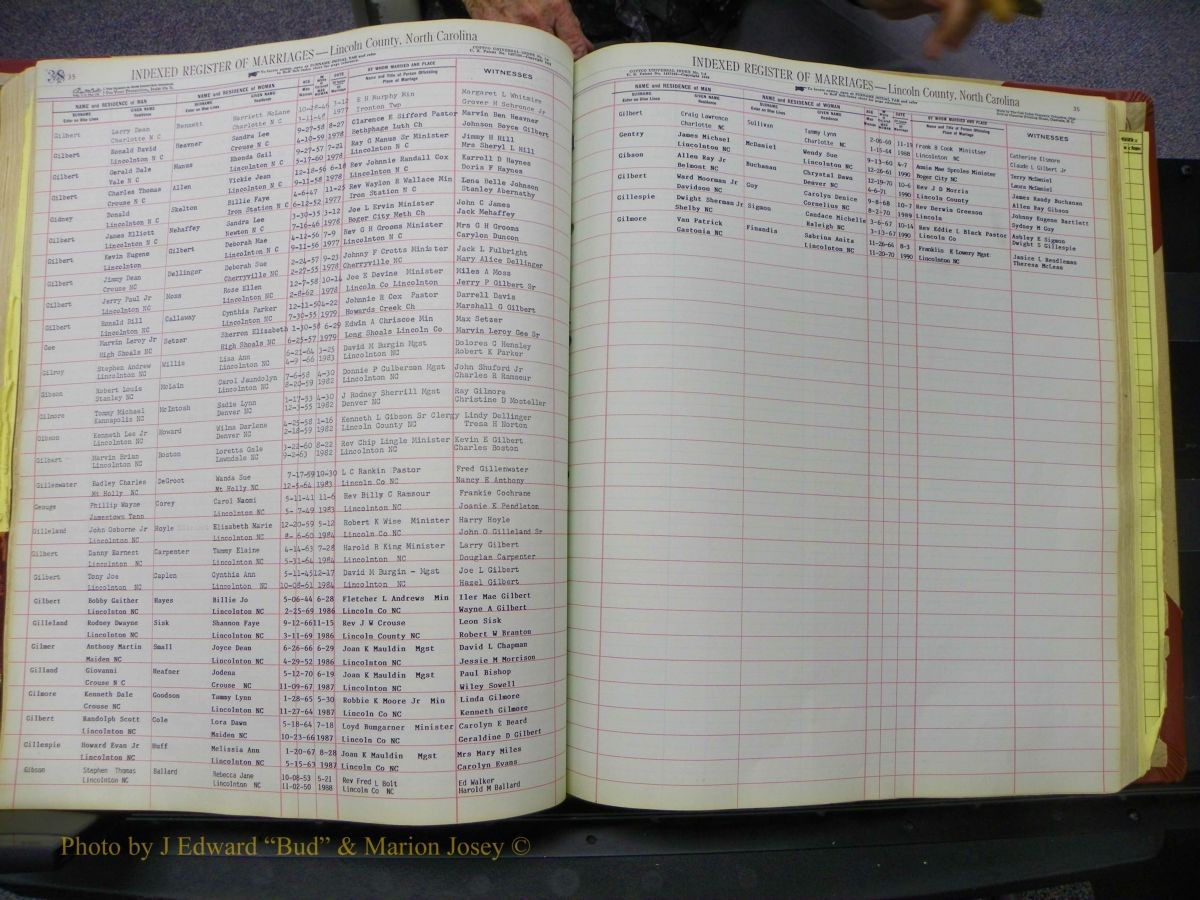 38 35
INDEXED REGISTER OF MARRIAGES—Lincoln County, North Carolina
NAME and RESIDENCE OF MAN NAME and RESIDENCE OF WOMAN BY WHOM MARRIED AND PLACE WITNESSES
Gilbert Larry Dean Bennett Harriett McLane 10-28-46 3-12 E H Murphy Min Margaret L Whitmire
Charlotte N C Charlotte N C 3-11-48 1977 Ironton Twp Grover H Schronce Jr
Gilbert Ronald David Heavner Sandra Lee 9-27-58 8-27 Clarence E Sifford Pastor Marvin Ben Heavner
Lincolnton N C Crouse N C 4-10-59 1978 Bethphage Luth Ch Johnson Boyce Gilbert
Gilbert Gerald Dale Manus Rhonda Gail 9-27-57 7-21 Ray G Manus Sr Minister Jimmy H Hill
Vale N C Lincolnton N C 5-17-60 1978 Lincolnton N C Mrs Sheryl L Hill
Gilbert Charles Thomas Allen Vickie Jean 12-18-56 6-18 Rev Johnnie Randall Cox Karroll D Haynes
Crouse N C Lincolnton N C 9-11-58 1978 Lincolnton N C Doria F Haynes
Gidney Donald Skelton Billie Faye 4-6-47 11-25 Rev Waylon R Wallace Min Lena Belle Johnson
Lincolnton N C Iron Station N C 6-12-52 1977 Iron Station N C Stanley Abernathy
Gilbert James Elliott Mehaffey Sandra Lee 3-30-35 3-12 Joe L Ervin Minister John C James
Lincolnton N C Newton N C 7-16-46 1978 Roger City Meth Ch Jack Mehaffey
Gilbert Kevin Eugene Gilbert Deborah Mae 4-12-56 7-9 Rev G H Grooms Minister Mrs G H Grooms
Lincolnton Lincolnton N C 9-11-56 1977 Lincolnton N C Carylon Duncon
Gilbert Jimmy Dean Dellinger Deborah Sue 2-24-57 9-23 Johnny F Crotts Minister Jack L Fulbright
Crouse NC Cherryville NC 2-27-55 1978 Cherryville NC Mary Alice Dellinger
Gilbert Jerry Paul Jr Moss Rose Ellen 12-7-58 10-14 Joe K Davine Minister Miles A Moss
Lincolnton NC Lincolnton NC 2-8-62 1978 Lincoln Co Lincolnton Jerry P Gilbert Sr
Gilbert Ronald Bill Callaway Cynthia Parker 12-11-50 4-22 Johnnie R Cox Pastor Darrell Davis
Lincolnton NC Lincolnton NC 7-30-55 1979 Howards Creek Ch Marshall G Gilbert
Gee Marvin Leroy Jr Setzer Sherron Elizabeth 1-30-58 6-29 Edwin A Chriscoe Min Max Setzer
High Shoals NC High Shoals NC 6-25-57 1979 Long Shoals Lincoln Co Marvin Leroy Gee Sr
Gilroy Stephen Andrew Willis Lisa Ann 6-21-64 3-25 David M Burgin Mgst Dolores C Hensley
Lincolnton NC Lincolnton NC 4-9-66 1983 Lincolnton NC Robert K Parker
Gibson Robert Louis McLain Carol Jaundolyn 7-6-58 4-30 Donnie P Culberson Mgst John Shuford Jr
Stanley NC Lincolnton NC 8-20-59 1982 Lincolnton NC Charles R Ramseur
Gilmore Tommy Michael McIntosh Sadie Lynn 1-17-53 4-30 J Rodney Sherrill Mgst Ray Gilmore
Kannapolis NC Denver NC 12-3-55 1982 Denver NC Christine D Mosteller
Gibson Kenneth Lee Jr Howard Wilma Darlene 4-25-58 1-16 Kenneth L Gibson Sr Clergy Lindy Dellinger
Lincolnton NC Denver NC 2-18-59 1982 Lincoln County NC Tresa H Norton
Gilbert Marvin Brian Boston Loretta Gale 3-22-60 8-22 Rev Chip Lingle Minister Kevin E Gilbert
Lincolnton NC Lawndale NC 9-2-63 1982 Lincolnton NC Charles Boston
Gillenwater Radley Charles DeGroot Wanda Sue 7-17-59 10-30 L C Rankin Pastor Fred Gillenwater
Mt Holly NC Mt Holly NC 12-5-64 1983 Lincoln Co NC Nancy E Anthony
George Phillip Wayne Corey Carol Naomi 5-11-41 11-6 Rev Billy C Ramsour Frankie Cochrane
Jamestown Tenn Lincolnton NC 5-7-49 1983 Lincoln Co NC Joanie E Pendleton
Gilleland John Osborne Jr Hoyle Elizabeth Marie 12-20-59 5-12 Robert K Wise Minister Harry Hoyle
Lincolnton NC Lincolnton NC 8-6-60 1984 Lincoln Co NC John O Gilleland Sr
Gilbert Danny Earnest Carpenter Tammy Elaine 4-14-63 7-28 Harold R King Minister Larry Gilbert
Lincolnton NC Lincolnton NC 5-31-64 1984 Lincolnton NC Douglas Carpenter
Gilbert Tony Joe Caplen Cynthia Ann 5-11-45 12-17 David M Burgin - Mgst Joe L Gilbert
Lincolnton NC Lincolnton NC 10-08-61 1984 Lincolnton NC Hazel Gilbert
Gilbert Bobby Gaither Hayes Billie Jo 5-06-44 6-28 Fletcher L Andrews Min Iler Mae Gilbert
Lincolnton NC Lincolnton NC 2-25-69 1986 Lincoln Co NC Wayne A Gilbert
Gilleland Rodney Dwayne Sisk Shannon Faye 9-12-66 11-15 Rev J W Crouse Leon Sisk
Lincolnton NC Lincolnton NC 3-11-69 1986 Lincoln County NC Robert W Branton
Gilmer Anthony Martin Small Joyce Dean 6-26-66 6-29 Joan K Mauldin Mgst David L Chapman
Maiden NC Lincolnton NC 4-29-52 1986 Lincolnton NC Jessie M Morrison
Gilland Giovanni Heafner Jodena 5-12-70 6-19 Joan K Mauldin Mgst Paul Bishop
Crouse N C Crouse NC 11-09-67 1987 Lincolnton NC Wiley Sowell
Gilmore Kenneth Dale Goodson Tammy Lynn 1-28-65 5-30 Robbie K Moore Jr Min Linda Gilmore
Crouse NC Lincolnton NC 11-27-64 1987 Lincoln Co NC Kenneth Gilmore
Gilbert Randolph Scott Cole Lora Dawn 5-18-64 7-18 Loyd Bumgarner Minister Carolyn E Beard
Lincolnton NC Maiden NC 10-23-66 1987 Lincoln Co NC Geraldine D Gilbert
Gillespie Howard Evan Jr Huff Melissia Ann 1-20-67 8-28 Joan K Mauldin Mgst Mrs Mary Miles
Lincolnton NC Lincolnton NC 5-15-63 1987 Lincoln Co NC Carolyn Evans
Gibson Stephen Thomas Ballard Rebecca Jane 10-08-53 5-21 Rev Fred L Bolt Ed Walker
Lincolnton NC Lincolnton NC 11-02-50 1988 Lincoln Co NC Harold M Ballard
INDEXED REGISTER OF MARRIAGES—Lincoln County, North Carolina
35
NAME and RESIDENCE OF MAN NAME and RESIDENCE OF WOMAN BY WHOM MARRIED AND PLACE WITNESSES
Gilbert Craig Lawrence Sullivan Tammy Lynn 2-06-60 11-19 Frank B Cook Minister Catherine Elsmore
Charlotte NC Charlotte NC 1-15-64 1988 Lincolnton NC Claude L Gilbert Jr
Gentry James Michael McDaniel Wendy Sue 9-13-60 4-7 Annie Mae Sproles Minister Terry McDaniel
Lincolnton NC Lincolnton NC 12-26-61 1990 Boger City NC Laura McDaniel
Gibson Allen Ray Jr Buchanan Chrystal Dawn 12-19-70 10-6 Rev J D Morris James Randy Buchanan
Belmont NC Denver NC 4-6-71 1990 Lincoln County Allen Ray Gibson
Gilbert Ward Moorman Jr Guy Carolyn Denice 9-8-68 10-7 Rev Derwin Greeson Johnny Eugene Bartlett
Davidson NC Cornelius NC 8-2-70 1989 Lincoln Sydney M Guy
Gillespie Dwight Sherman Jr Sigmon Candace Michelle 3-6-67 10-14 Rev Eddie L Black Pastor Ashley E Sigmon
Shelby NC Raleigh NC 3-13-67 1990 Lincoln Co Dwight S Gillespie
Gilmore Van Patrick Finandis Sabrina Anita 11-26-64 8-3 Franklin E Lowery Mgst Janice L Beudleman
Gastonia NC Lincolnton NC 11-20-70 1990 Lincolnton NC Theresa McLean
Photo by J Edward “Bud” & Marion Josey ©